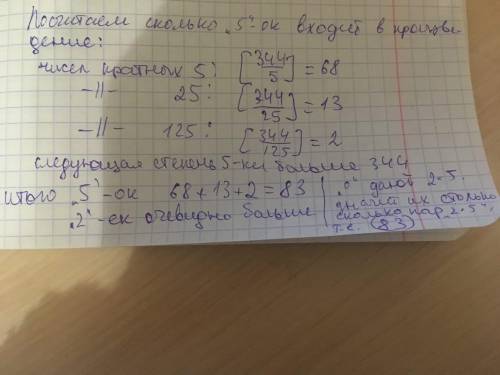 Посчитаем сколько „5"-ок входит в произве-
дение:
чисел кратных 5: [344/5] = 68
-//- 25: [344/25] = 13
-//- 125: [344/125] = 2
следующая степень 5-ки больше 344
итого „5"-ок 68+13+2=83
„2"-ек очевидно больше
„0" дают 2·5,
значит их столько
сколько пар „2·5",
т.е. (83)